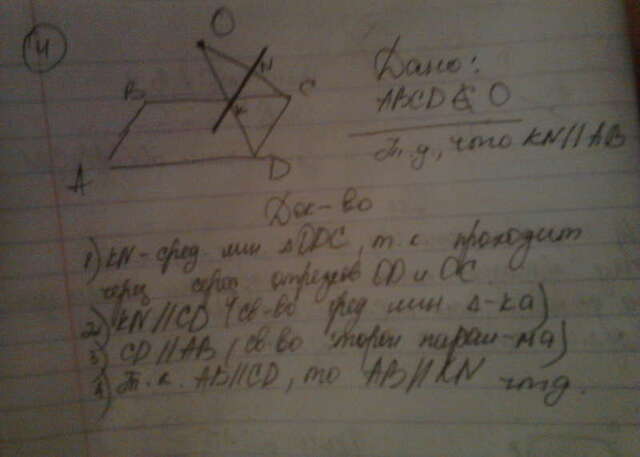 4
O
N
B
C
K
A
D
Дано:
ABCD O
Т.д, что KN//AB
Док-во
1) KN - сред. лин. △ODC, т.к. проходит
через серед. отрезков OD и OC
2) KN//CD (св-во сред лин. △-ка)
3) CD//AB (св-во сторон парал-ма)
4) Т.к. AB//CD, то AB//KN чтд.